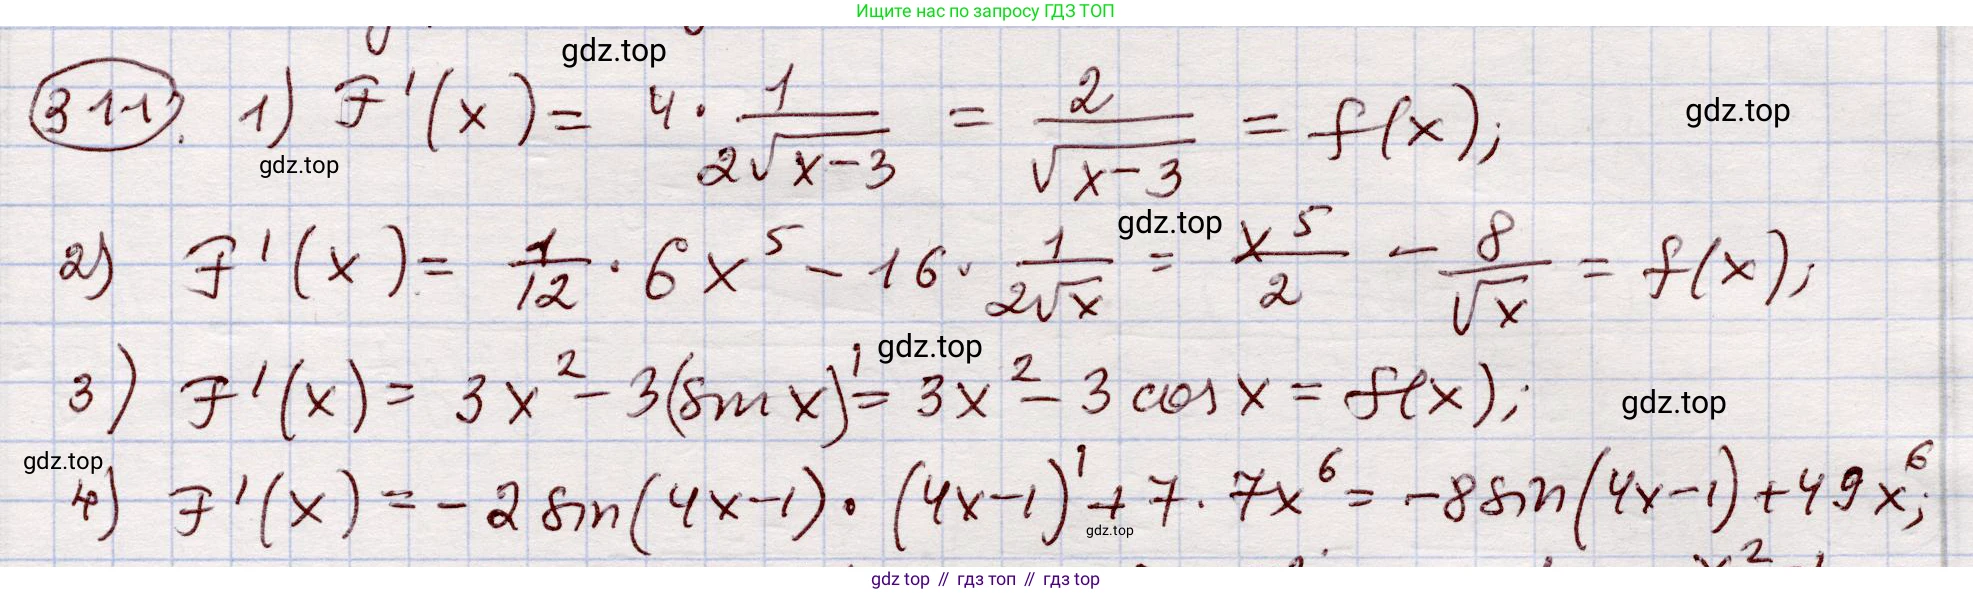 Ищите нас по запросу ГДЗ ТОП
gdz.top
311. 1) F'(x) = 4 · 1/(2√(x-3)) = 2/√(x-3) = f(x);
gdz.top
gdz.top
gdz.top
2) F'(x) = 1/12 · 6x⁵ - 16 · 1/(2√x) = x⁵/2 - 8/√x = f(x);
gdz.top
3) F'(x) = 3x² - 3(sin x)' = 3x² - 3 cos x = f(x);
gdz.top
gdz.top
4) F'(x) = -2 sin(4x-1) · (4x-1)' + 7 · 7x⁶ = -8 sin(4x-1) + 49x⁶;
gdz.top
gdz top // гдз топ // гдз top